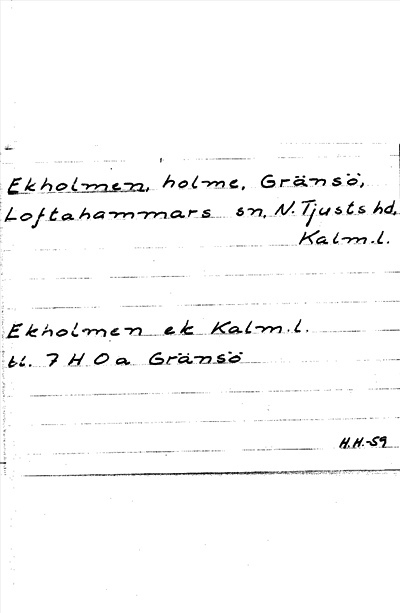 Ekholmen, holme, Gränsö,
Loftahammars sn, N. Tjusts hd,
Kalm.l.
Ekholmen ek Kalm.l.
bl. 7 H O a Gränsö
H.H.-59